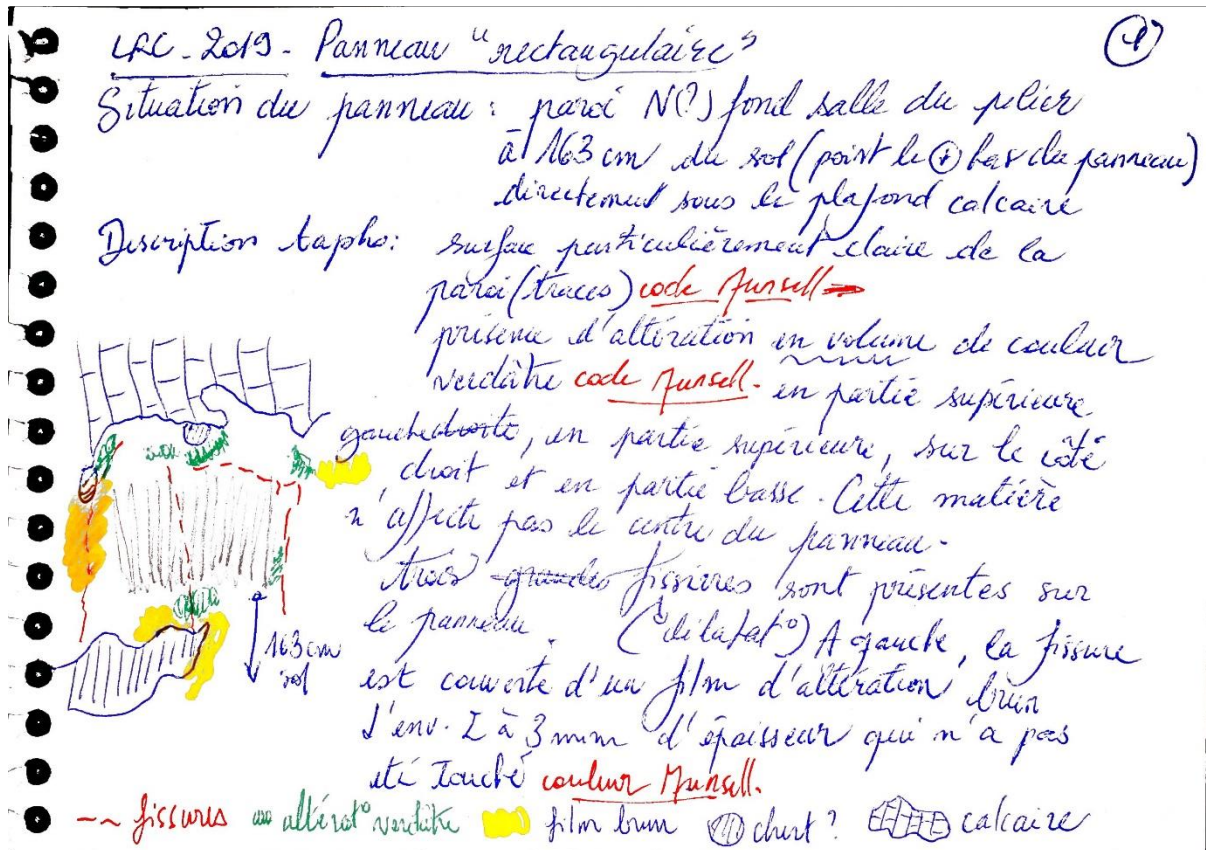 LRC - 2019 - Panneau "rectangulaire"
Situation du panneau : paroi N(?) fond salle du pilier
à 163 cm du sol (point le + bas du panneau)
directement sous le plafond calcaire
Description tapho: surface particulièrement claire de la
paroi (traces) code Munsell
présence d'altération en volume de couleur
verdâtre code Munsell. en partie supérieure
gauche droite, en partie supérieure, sur le côté
droit et en partie basse. Cette matière
n'affecte pas le centre du panneau.
trois grandes fissures sont présentes sur
le panneau. (dilatat°) A gauche, la fissure
est couverte d'un film d'altération brun
d'env. 2 à 3 mm d'épaisseur qui n'a pas
été touché couleur Munsell.
163 cm
sol
fissures altérat° verdâtre film brun chert? calcaire